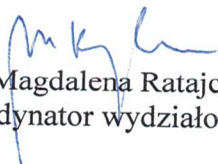 Magdalena Ratajc
dynator wydziało